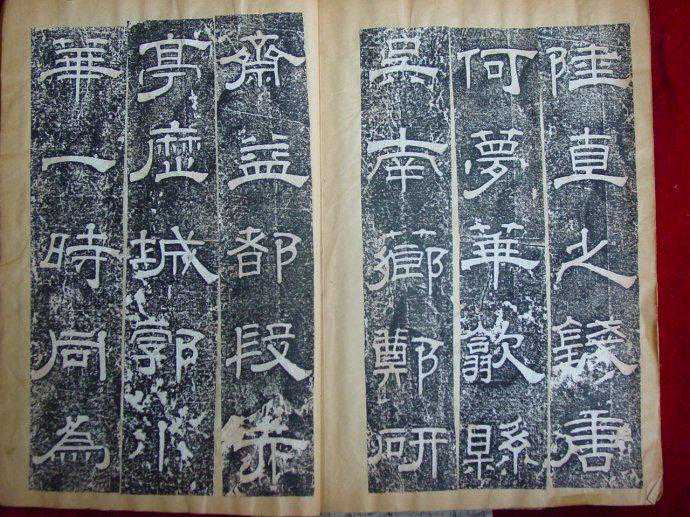 陸直之錢唐
何夢華歙縣
吳南薌鄭研
齋益都段赤
亭歷城郭小
華一時同為